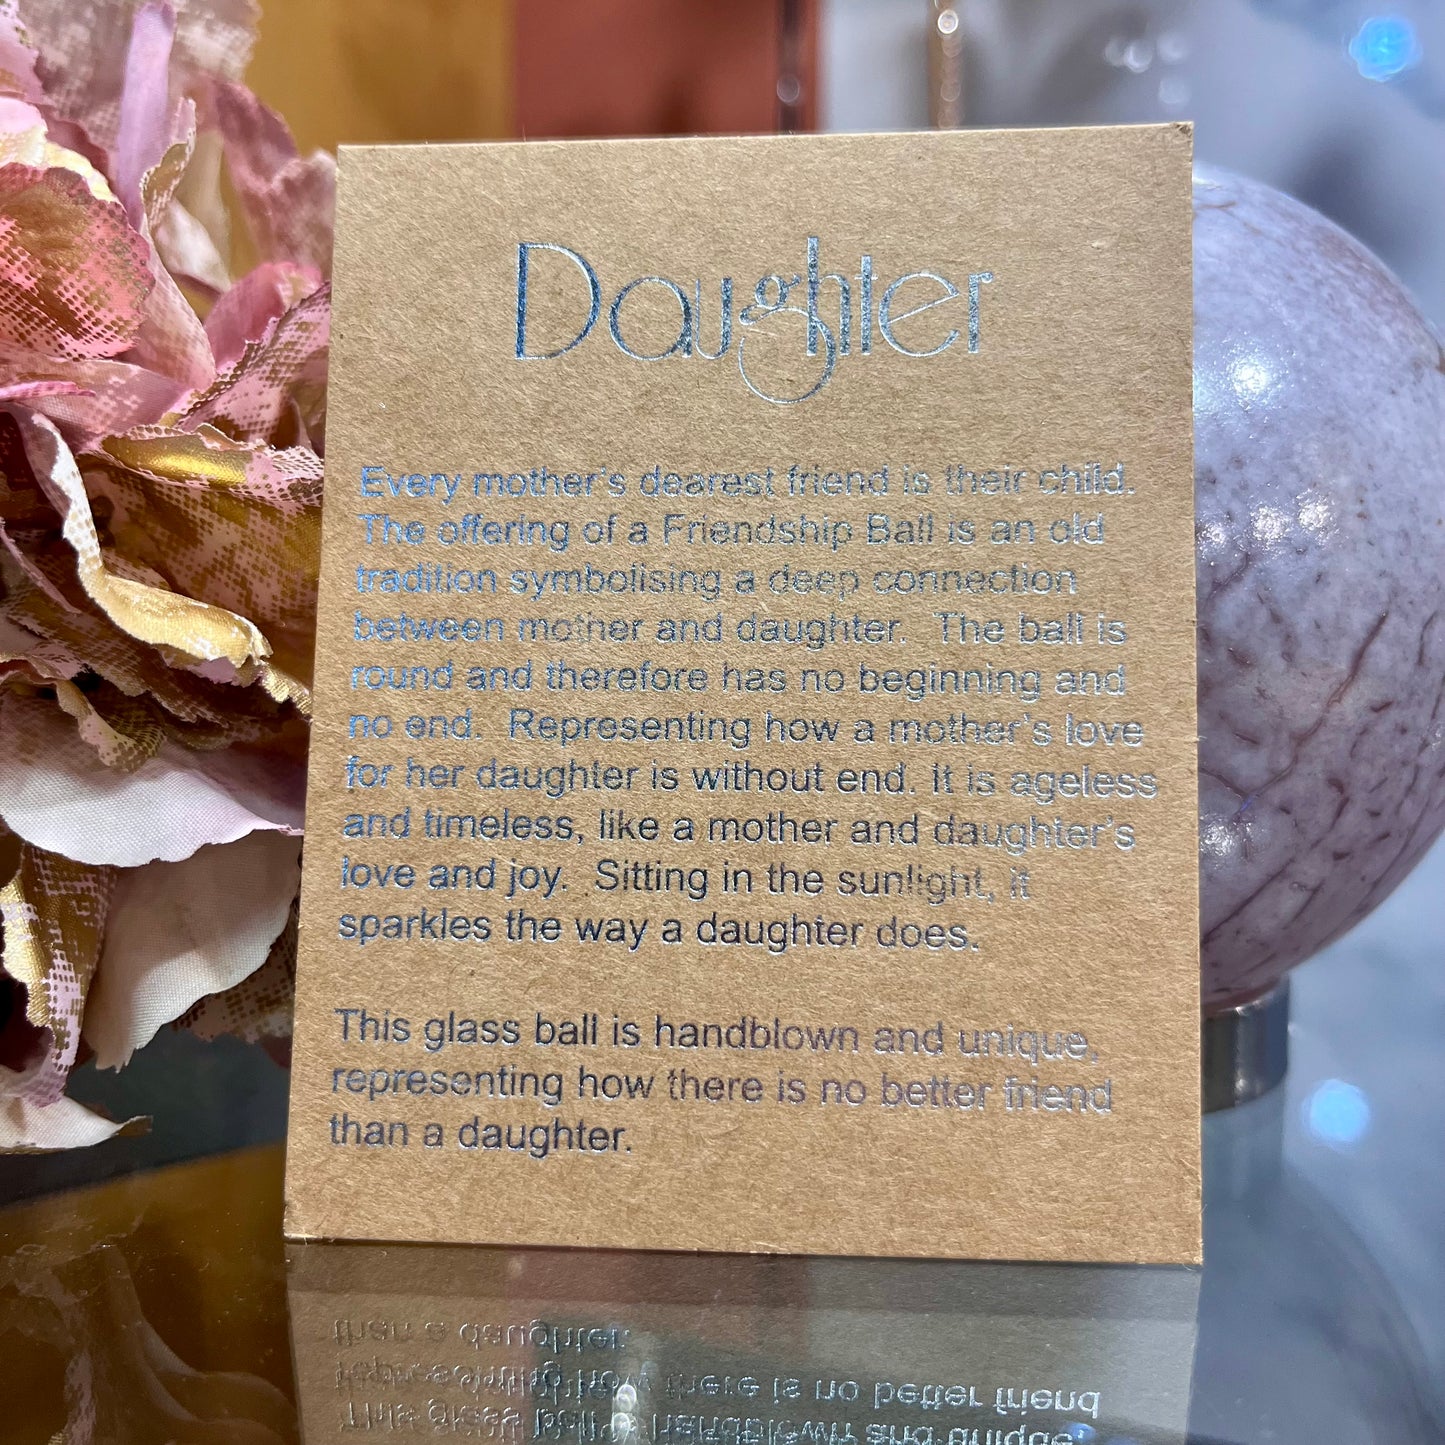 Daughter
Every mother's dearest friend is their child.
The offering of a Friendship Ball is an old
tradition symbolising a deep connection
between mother and daughter. The ball is
round and therefore has no beginning and
no end. Representing how a mother's love
for her daughter is without end. It is ageless
and timeless, like a mother and daughter's
love and joy. Sitting in the sunlight, it
sparkles the way a daughter does.
This glass ball is handblown and unique,
representing how there is no better friend
than a daughter.
than a daughter.
representing how there is no better friend
This glass ball is handblown and unique,